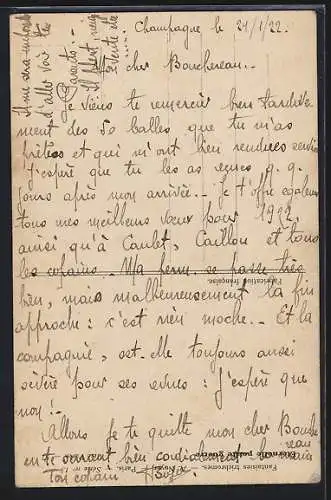 Champagne le 21/1/22.
cher Bouchereau...
Je viens te remercier bien tardive
ment des 50 balles que tu m'as
prêtées et qui m'ont bien rendues service
J'espère que tu les as reçues q.q.
jours après mon arrivée... Je t'offre également
tous mes meilleurs vœux pour 1922,
ainsi qu'à Caulet, Caillou et tous
les copains. Ma perm. se passe très
bien, mais malheureusement la fin
approche : c'est rien moche.. Et la
compagnie, est-elle toujours aussi
sévère pour ses
: j'espère que
non!
Allons je te quitte mon cher Bouche
reau
en te serrant bien cordialement la main
ton copain
Il me sera
d'aller voir tes
Parents.
Il
Fabrication française.
Fantaisies Trichromes.
Paris